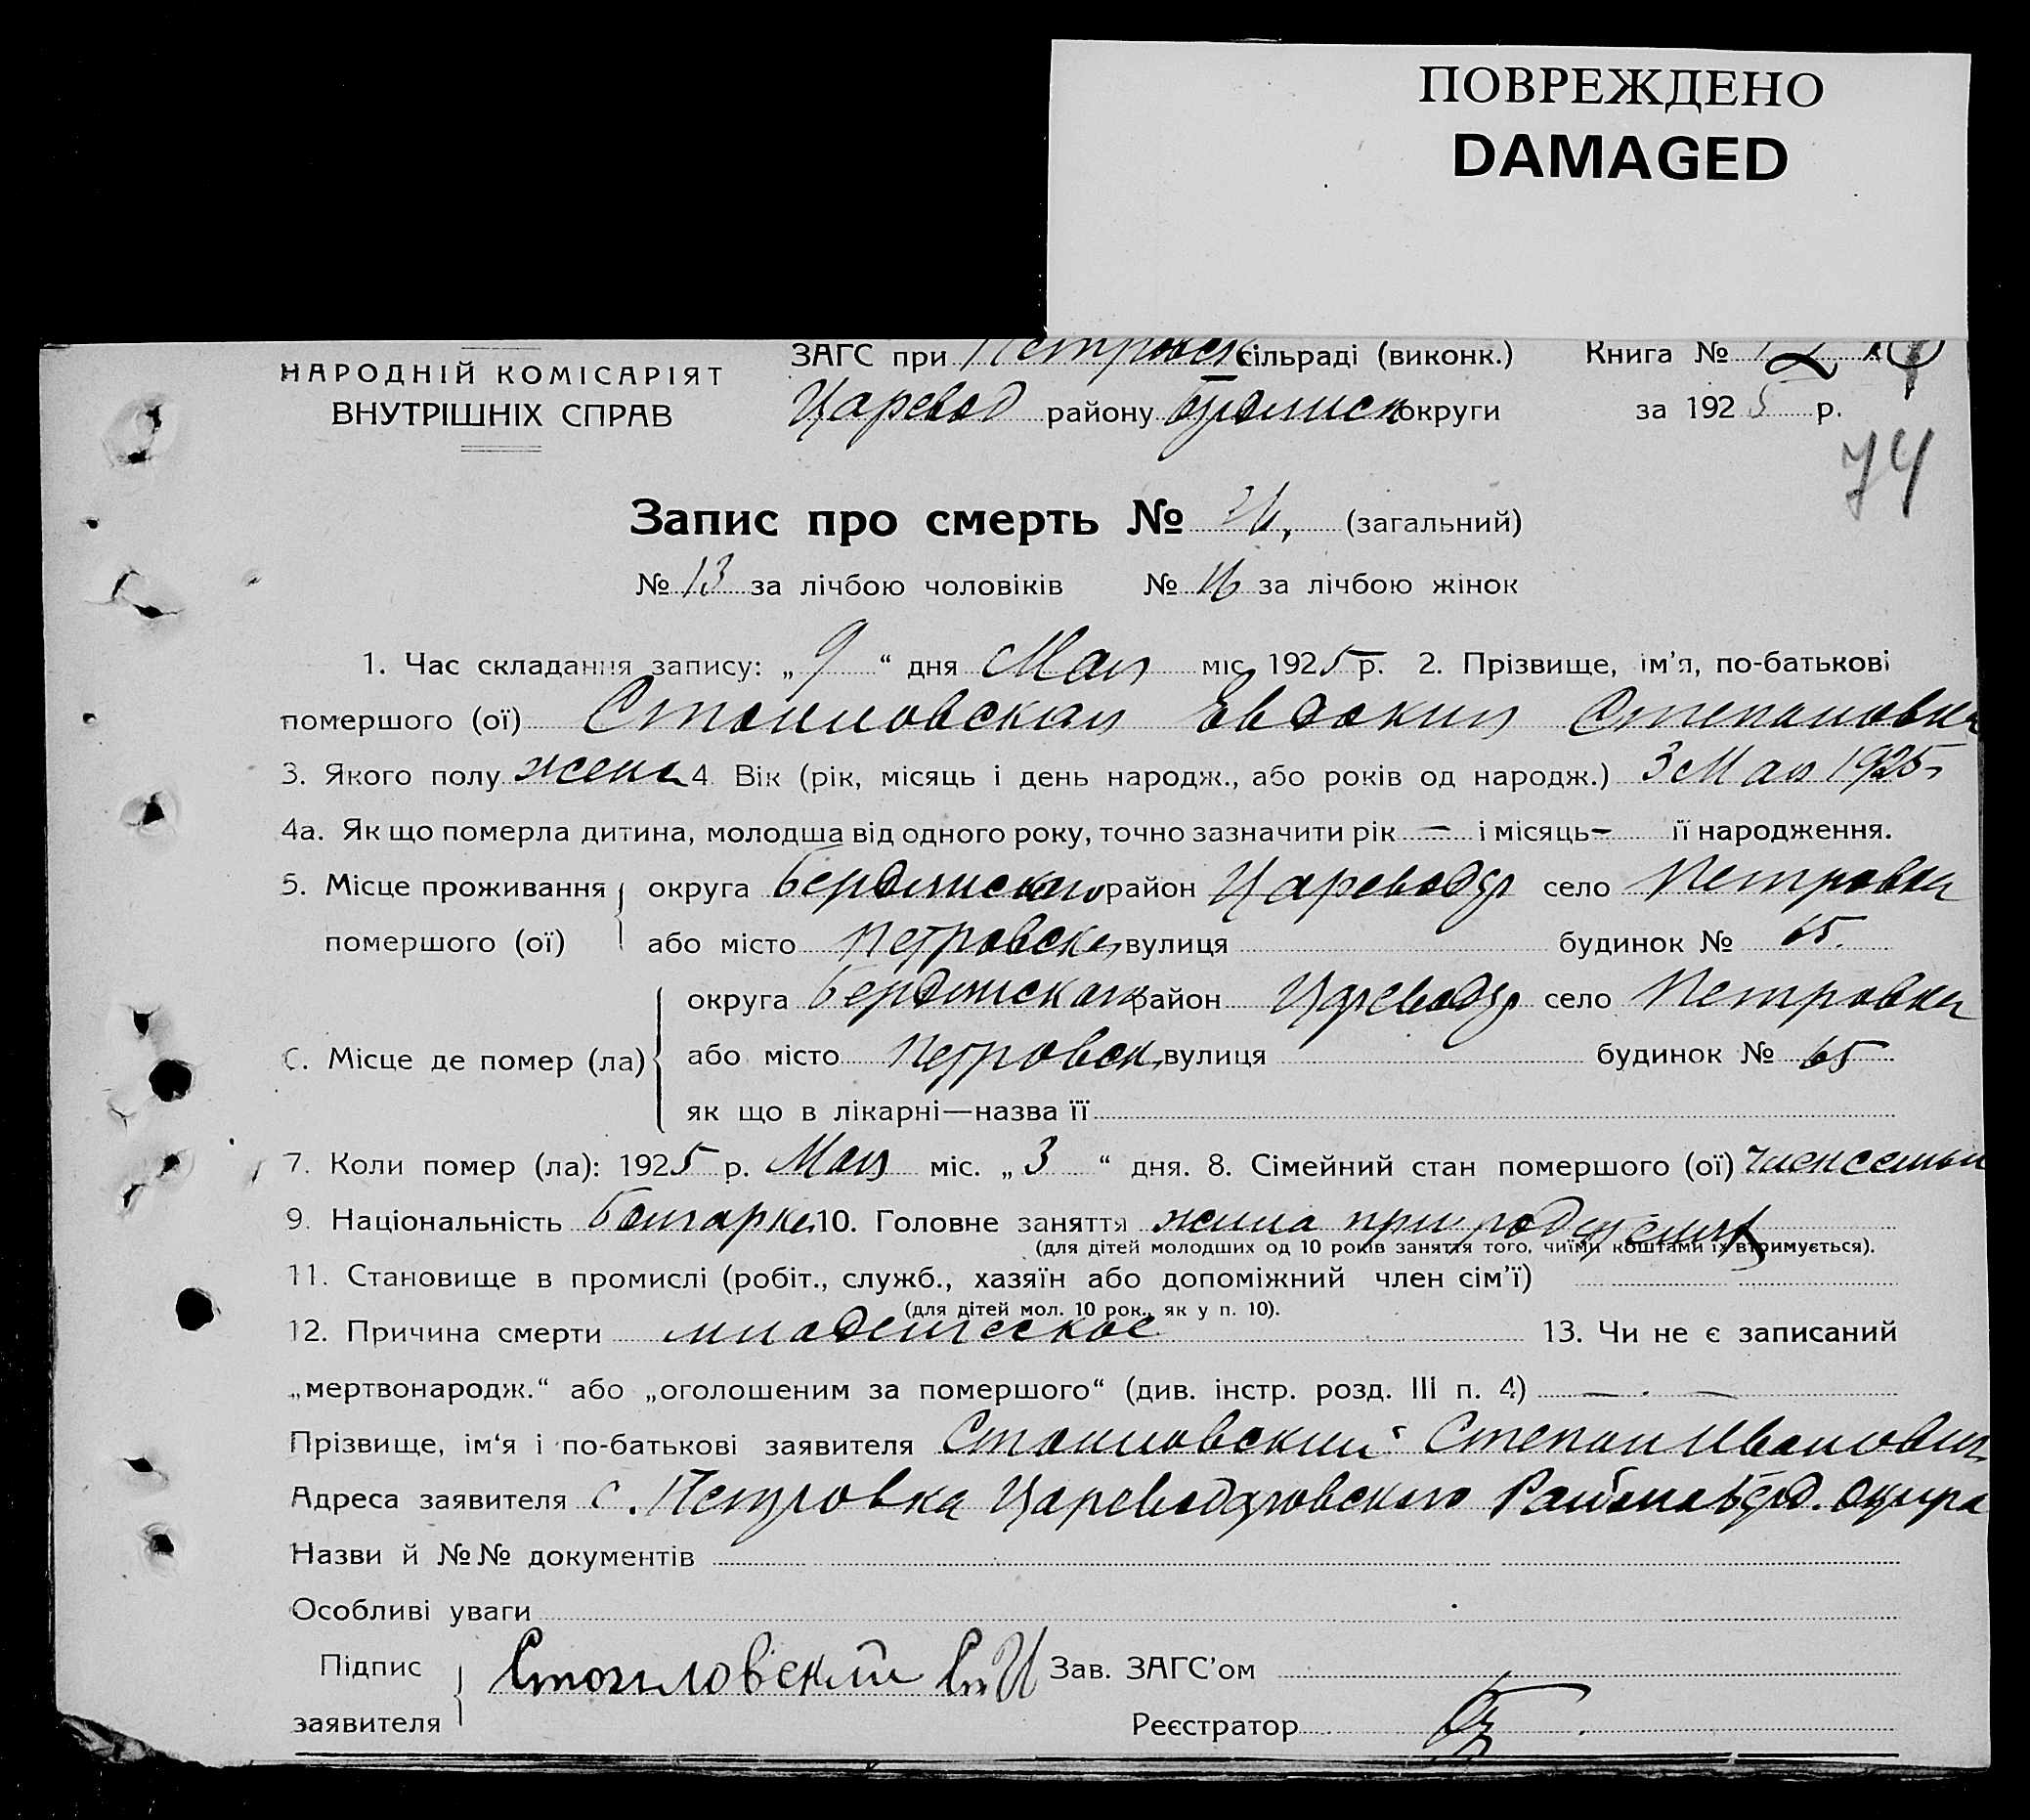 ПОВРЕЖДЕНО
DAMAGED
НАРОДНІЙ КОМІСАРІЯТ
ВНУТРІШНІХ СПРАВ
ЗАГС при Петровск сільраді (виконк.) Книга №
Царевод району округи за 1925 р.
74
Запис про смерть № (загальний)
№ 13 за лічбою чоловіків № 16 за лічбою жінок
1. Час складання запису: „ 9 “ дня Мая міс. 1925 р. 2. Прізвище, ім’я, по-батькові
помершого (ої) Стоиловская Евдокия Степановна
3. Якого полу жена 4. Вік (рік, місяць і день народж., або років од народж.) 3 Мая 1925
4а. Як що померла дитина, молодша від одного року, точно зазначити рік — і місяць — її народження.
5. Місце проживання округа Бердянского районЦареводар село Петровка
помершого (ої) або місто Петровка вулиця будинок № 65.
округа Бердянского район Цареводар село Петровка
С. Місце де помер (ла) або місто Петровск вулиця будинок № 65
як що в лікарні—назва її
7. Коли помер (ла): 1925 р. Мая міс. „ 3 “ дня. 8. Сімейний стан помершого (ої) член семьи
9. Національність Болгарка 10. Головне заняття жила при родителях
(для дітей молодших од 10 років заняття того, чиїми коштами їх втримується).
11. Становище в промислі (робіт., служб., хазяїн або допоміжний член сім’ї)
(для дітей мол. 10 рок., як у п. 10).
12. Причина смерти младенческое 13. Чи не є записаний
„мертвонародж.“ або „оголошеним за помершого“ (див. інстр. розд. III п. 4) — . —
Прізвище, ім‘я і по-батькові заявителя Стоиловский Степан Иванович
Адреса заявителя с. Петровка Цареводаровского Района Берд. округа
Назви й №№ документів
Особливі уваги
Підпис Стоиловский Ст И Зав. ЗАГС’ом
заявителя Реєстратор